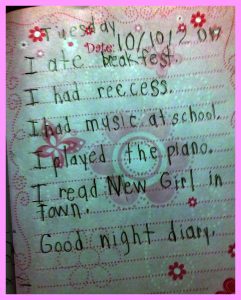 Tuesday
Date: 10/10/2017
I ate breakfest.
I had reccess.
I had music at school.
I played the piano.
I read New Girl in
Town.
Good night diary.